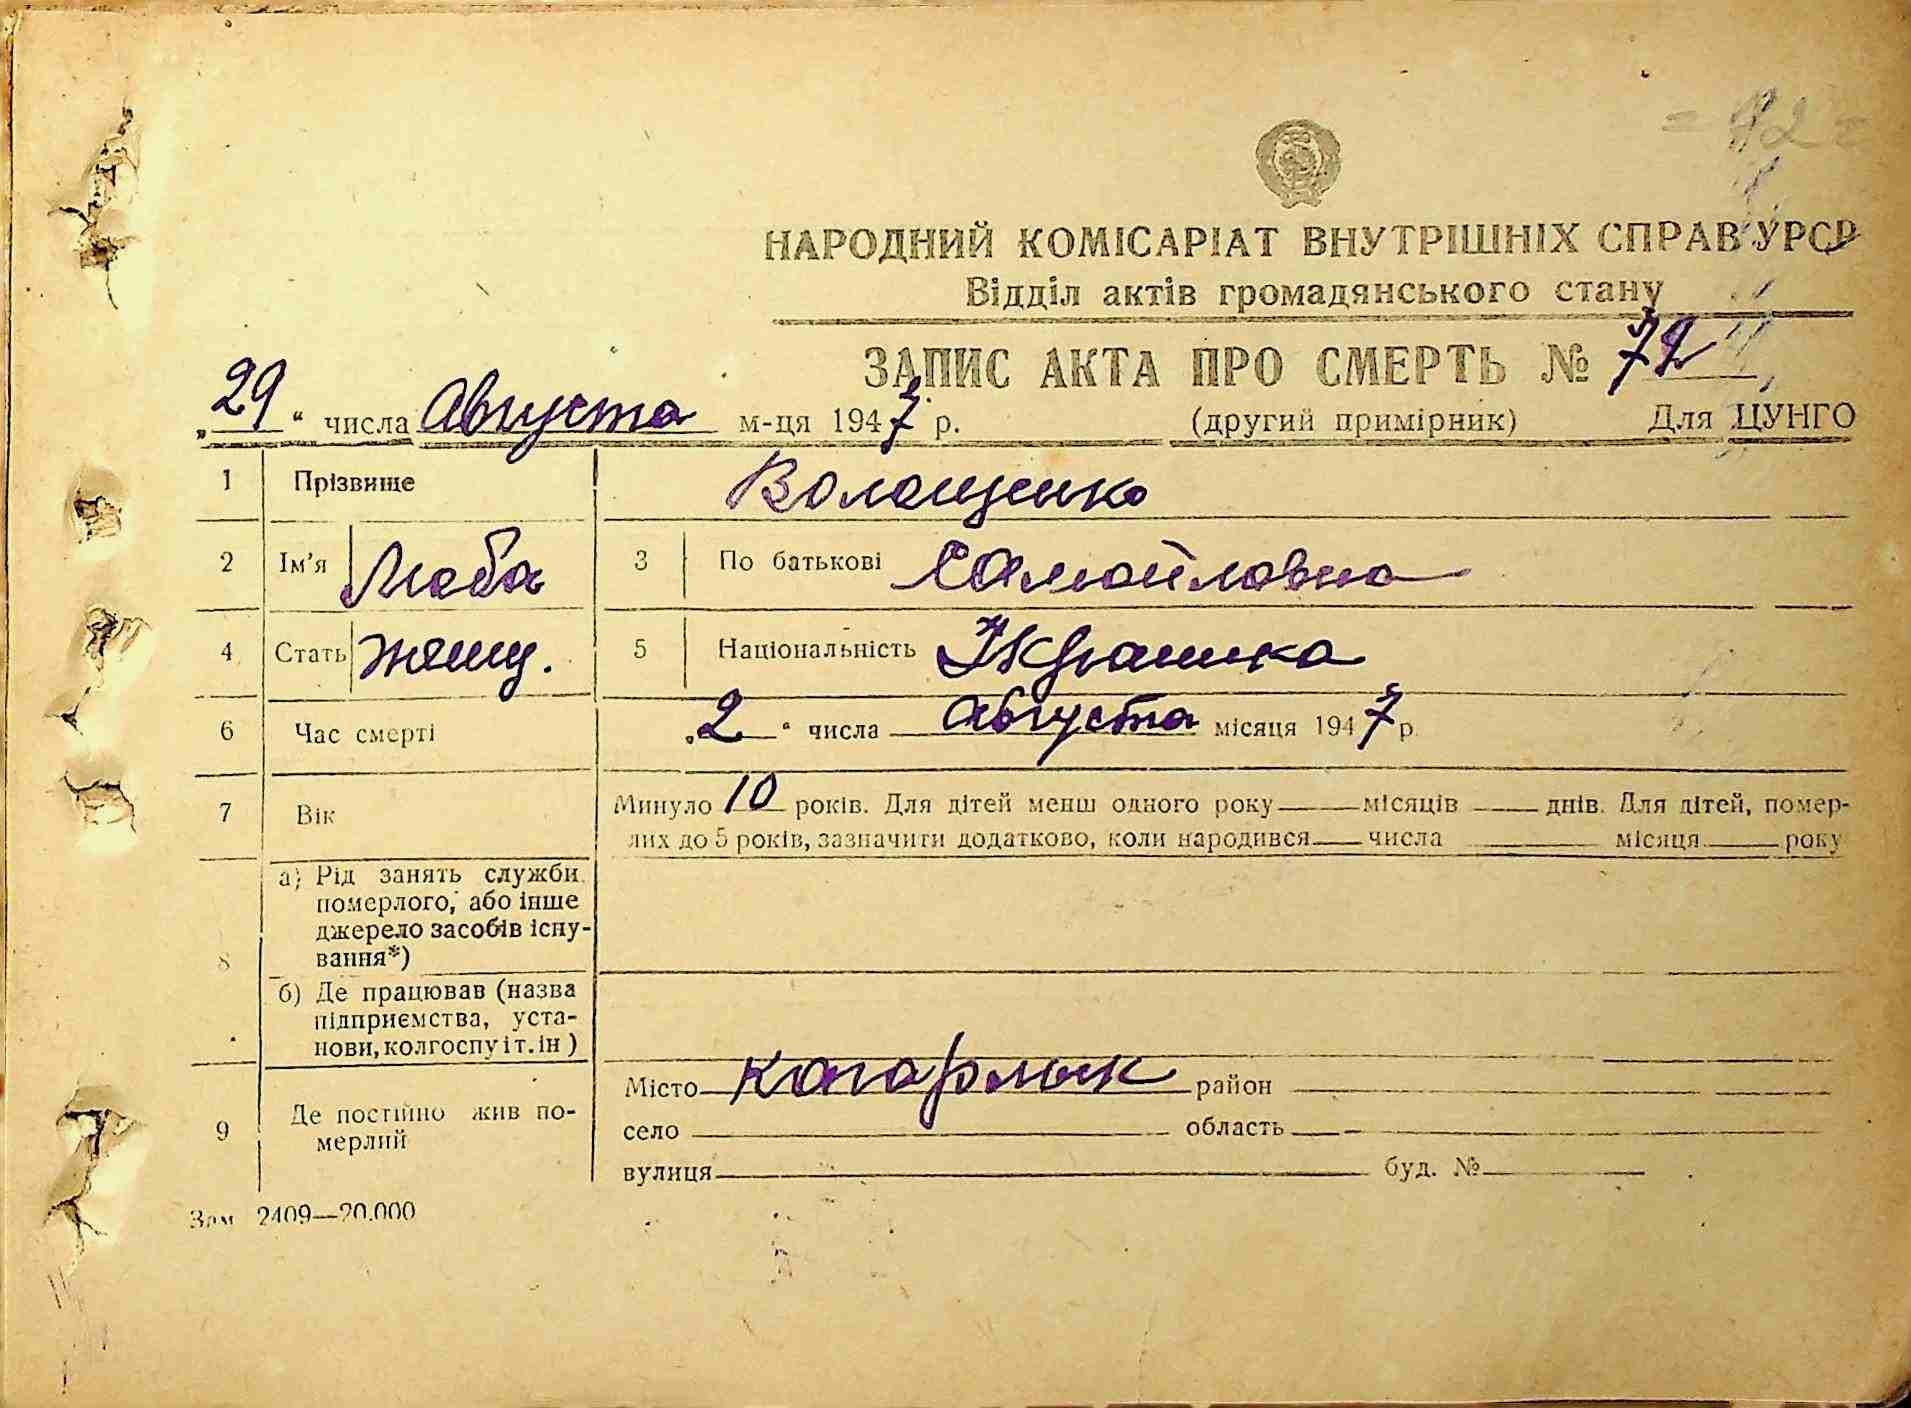 НАРОДНИЙ КОМІСАРІАТ ВНУТРІШНІХ СПРАВ УРСР
Відділ актів громадянського стану
ЗАПИС АКТА ПРО СМЕРТЬ № 72
„29“ числа Августа м-ця 1947 р. (другий примірник) Для ЦУНГО
1 Прізвище Волощенко
2 Ім'я Люба 3 По батькові Самойловна
4 Стать женщ. 5 Національність Украинка
6 Час смерті „2“ числа Августа місяця 1947 р.
7 Вік Минуло 10 років. Для дітей менш одного року місяців днів. Для дітей, помер-
лих до 5 років, зазначити додатково, коли народився числа місяця року
8 а) Рід занять служби
померлого, або інше
джерело засобів існу-
вання*)
б) Де працював (назва
підприємства, уста-
нови, колгоспу і т. ін )
9 Де постійно жив по-
мерлий
Місто Кагарлык район
село область
вулиця буд. №
Зам 2409—20.000